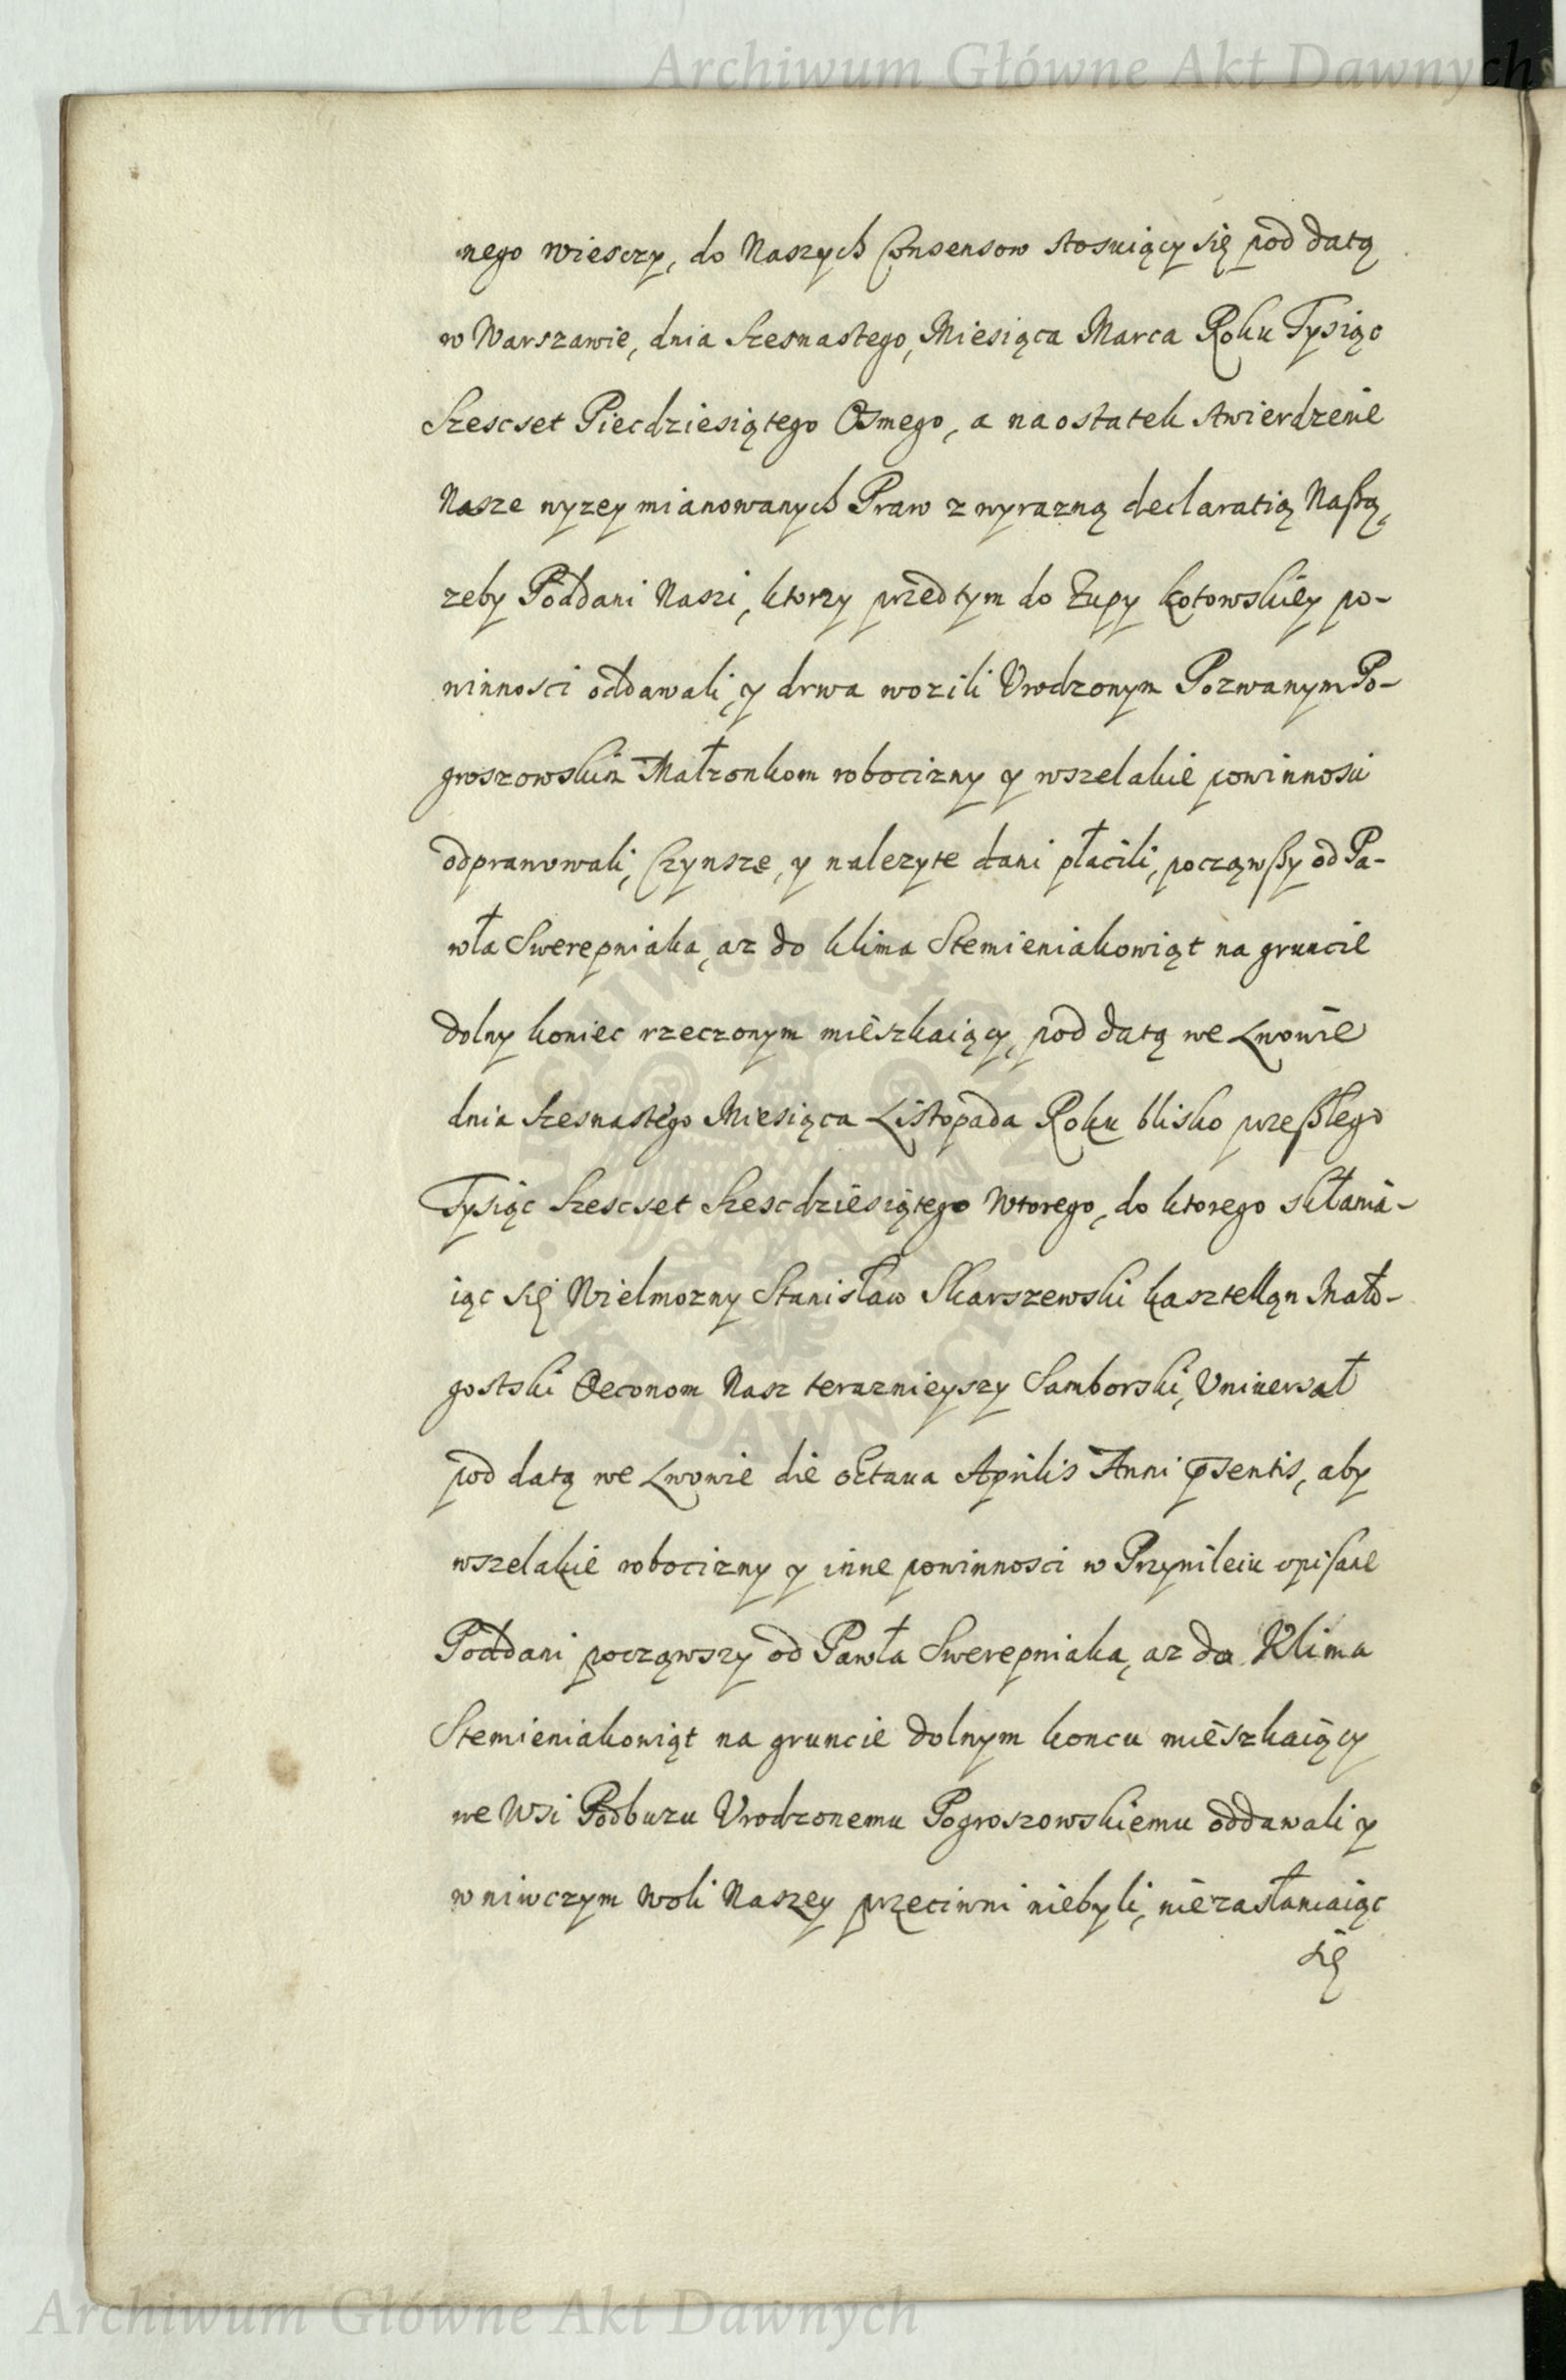 Archiwum Główne Akt Dawnych
nego wiesczy, do Naszych Consensow stosuiący się pod datą
w Warszawie, dnia Szesnastego, Miesiąca Marca Roku Tysiąc
Szescset Piecdziesiątego Osmego, a naostatek stwierdzenie
Nasze wyzey mianowanych Praw z wyrazną declaratią Naßą,
zeby Poddani Nasi, ktorzy przedtym do Zupy Kotowskiey po-
winnosci oddawali, y drwa wozili Vrodzonym Pozwanym Po-
groszowskim Małzonkom robocizny y wszelakie powinnosci
odprawowali, Czynsze, y nalezyte dani płacili, począwßy od Pa-
wła Swerepniaka, az do Klima Stemieniakowiąt na gruncie
dolny koniec rzeczonym mieszkaiący, pod datą we Lwowie
dnia Szesnastego Miesiąca Listopada Roku blisko przeßłego
Tysiąc Szescset Szescdziesiątego Wtorego, do ktorego skłania-
iąc się Wielmozny Stanisław Skarszewski Kasztellan Mało-
gostski Oeconom Nasz teraznieyszy Samborski, Vniuersał
pod datą we Lwowie die octaua Aprilis Anni psentis, aby
wszelakie robocizny y inne powinnosci w Przywileiu opisane
Poddani począwszy od Pawła Swerepniaka, az do Klima
Stemieniakowiąt na gruncie dolnym koncu mieszkaiący
we Wsi Podbuzu Vrodzonemu Pogroszowskiemu oddawali y
w niwczym Woli Naszey przeciwni niebyli, niezasłaniaiąc
się
ARCHIWUM GŁÓWNE AKT DAWNYCH
Archiwum Główne Akt Dawnych